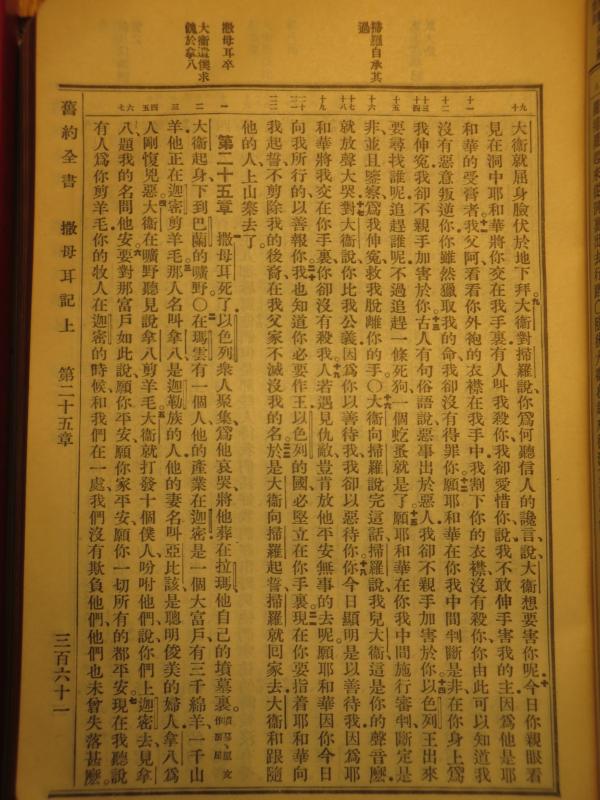 掃羅自承其過
撒母耳卒
大衛遣僕求餽於拿八
大衛就屈身臉伏於地下拜大衛對掃羅說你爲何聽信人的讒言說大衛想要害你呢今日你親眼看
見在洞中耶和華將你交在我手裏有人叫我殺你我卻愛惜你說我不敢伸手害我的主因爲他是耶
和華的受膏者我父阿看看你外袍的衣襟在我手中我割下你的衣襟沒有殺你你由此可以知道我
沒有惡意叛逆你你雖然獵取我的命我卻沒有得罪你願耶和華在你我中間判斷是非在你身上爲
我伸冤我卻不親手加害於你古人有句俗語說惡事出於惡人我卻不親手加害於你以色列王出來
要尋找誰呢追趕誰呢不過追趕一條死狗一個虼蚤就是了願耶和華在你我中間施行審判斷定是
非並且鑒察爲我伸冤救我脫離你的手〇大衛向掃羅說完這話掃羅說我兒大衛這是你的聲音麼
就放聲大哭對大衛說你比我公義因爲你以善待我我卻以惡待你你今日顯明是以善待我因爲耶
和華將我交在你手裏你卻沒有殺我人若遇見仇敵豈肯放他平安無事的去呢願耶和華因你今日
向我所行的以善報你我也知道你必要作王以色列的國必堅立在你手裏現在你要指着耶和華向
我起誓不剪除我的後裔在我父家不滅沒我的名於是大衛向掃羅起誓掃羅就回家去大衛和跟隨
他的人上山寨去了
第二十五章 撒母耳死了以色列衆人聚集爲他哀哭將他葬在拉瑪他自己的墳墓裏
大衛起身下到巴蘭的曠野〇在瑪雲有一個人他的產業在迦密是一個大富戶有三千綿羊一千山
羊他正在迦密剪羊毛那人名叫拿八是迦勒族的人他的妻名叫亞比該是聰明俊美的婦人拿八爲
人剛愎兇惡大衛在曠野聽見說拿八剪羊毛大衛就打發十個僕人吩咐他們說你們上迦密去見拿
八題我的名問他安要對那富戶如此說願你平安願你家平安願你一切所有的都平安現在我聽說
有人爲你剪羊毛你的牧人在迦密的時候和我們在一處我們沒有欺負他們他們也未曾失落甚麼
舊約全書 撒母耳記上 第二十五章 三百六十一